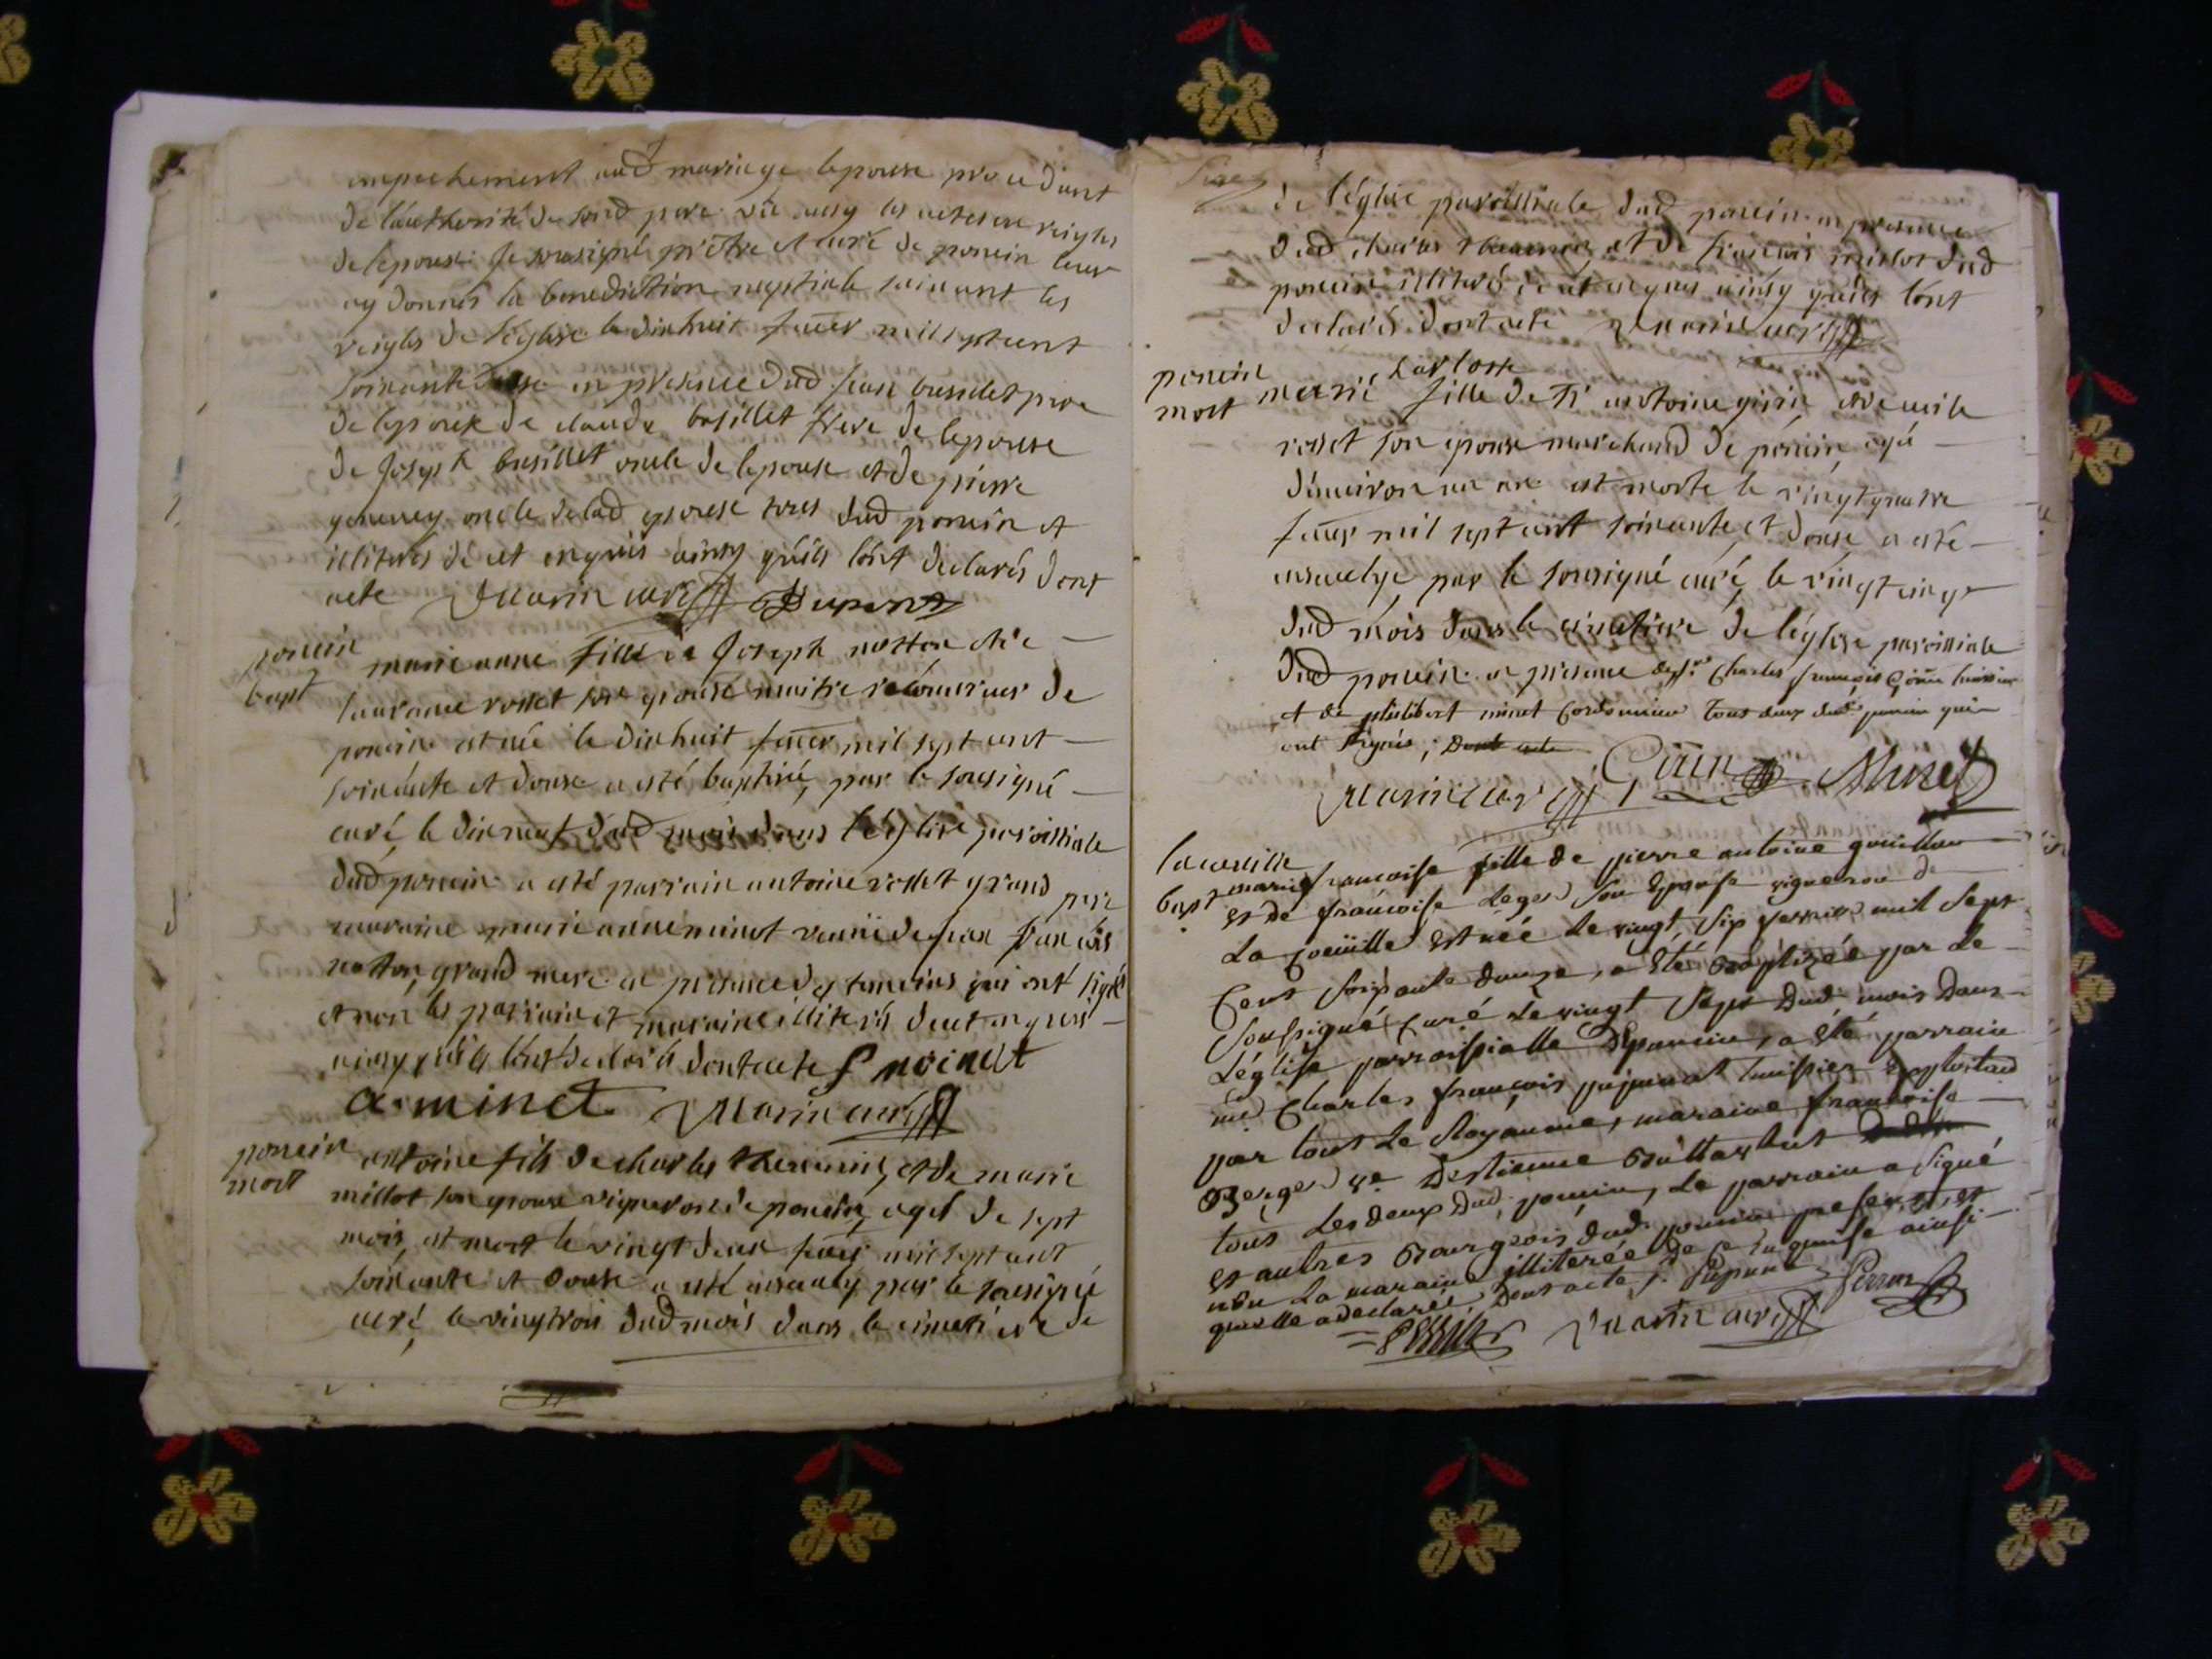 empechement aud mariage lepouse procedant
de lauthorité de soud pere vü aussy les actes en reigles
de lepouse Je sousigné prêtre et curé de poncin leur
ay donnés la benediction nuptiale suivant les
reigles de l'église le dixhuit fever mil sept cent
soixante douse en presence dud jean busillet pere
de lepouse de claude busillet frere de lepouse
de Joseph busillet oncle de lepouse et de pierre
oncle de lad epouse tous dud poncin et
illiterés de cet enquis ainsy quils l'ont declarés dont
acte Marin curé Dupont
poncin
bapt
marie anne fille de Joseph notton et de
laurance rosset son epouse maitre de
poncin est née le dixhuit fever mil sept cent
soixante et douse a esté baptisée par le sousigné
curé, le dixneuf dud mois dans l'églize paroissiale
dud poncin a esté parrain antoine rosset grand pere
maraine marie anne minet veuve de jean francois
notton, grand mere en presence des temoins qui ont signé
et non les parrain et maraine illiterés de cet enquis
ainsy quils l'ont declarés dont acte
a. minet Marin curé
poncin
mort
antoine fils de charles et de marie
millot son epouse vigneron de poncin, agé de sept
mois, est mort le vingt deux fever mil sept cent
soixante et douse a esté ensevely par le sousigné
curé, le vingtrois dud mois dans le cimetiere de
de l'églize paroissiale dud poncin en presence
dud charles et de francois millot dud
poncin illiterés de cet enquis ainsy quils l'ont
declarés dont acte Marin curé
poncin
mort
marie charlotte fille de Sr antoine et de
rosset son epouse marchand de poncin agé
d'environ un an est morte le vingt quatre
fever mil sept cent soixante, et douse a esté
ensevelye par le sousigné curé, le vingt cinq
dud mois dans le cimetiere de l'églyse paroissiale
dud poncin en presence de Sr Charles francois huissier
et de philibert minet Cordonnier tous deux dud poncin qui
ont signés, Dont acte
Marin curé Minet
la coeuille
bapt
marie francoise fille de pierre antoine
et de francoise Leger Son Epouse vigneron de
La Coeuille est née Le vingt Six fevrier mil Sept
Cent Soixante douze, a été Baptizée par Le
Soussigné Curé Le vingt Sept Dud mois Dans
L'église parroissialle De poncin, a été parrain
me Charles françois huissier Exploitand
par tout Le Royaume, maraine francoise
Berger ve D'estienne
tous Les deux Dud poncin, Le parrain a Signé
et autres Bourgeois dud poncin present, et
non La maraine illiterée De Ce Enquise ainsi
quelle a declarée Dont acte Dupont
Marin curé